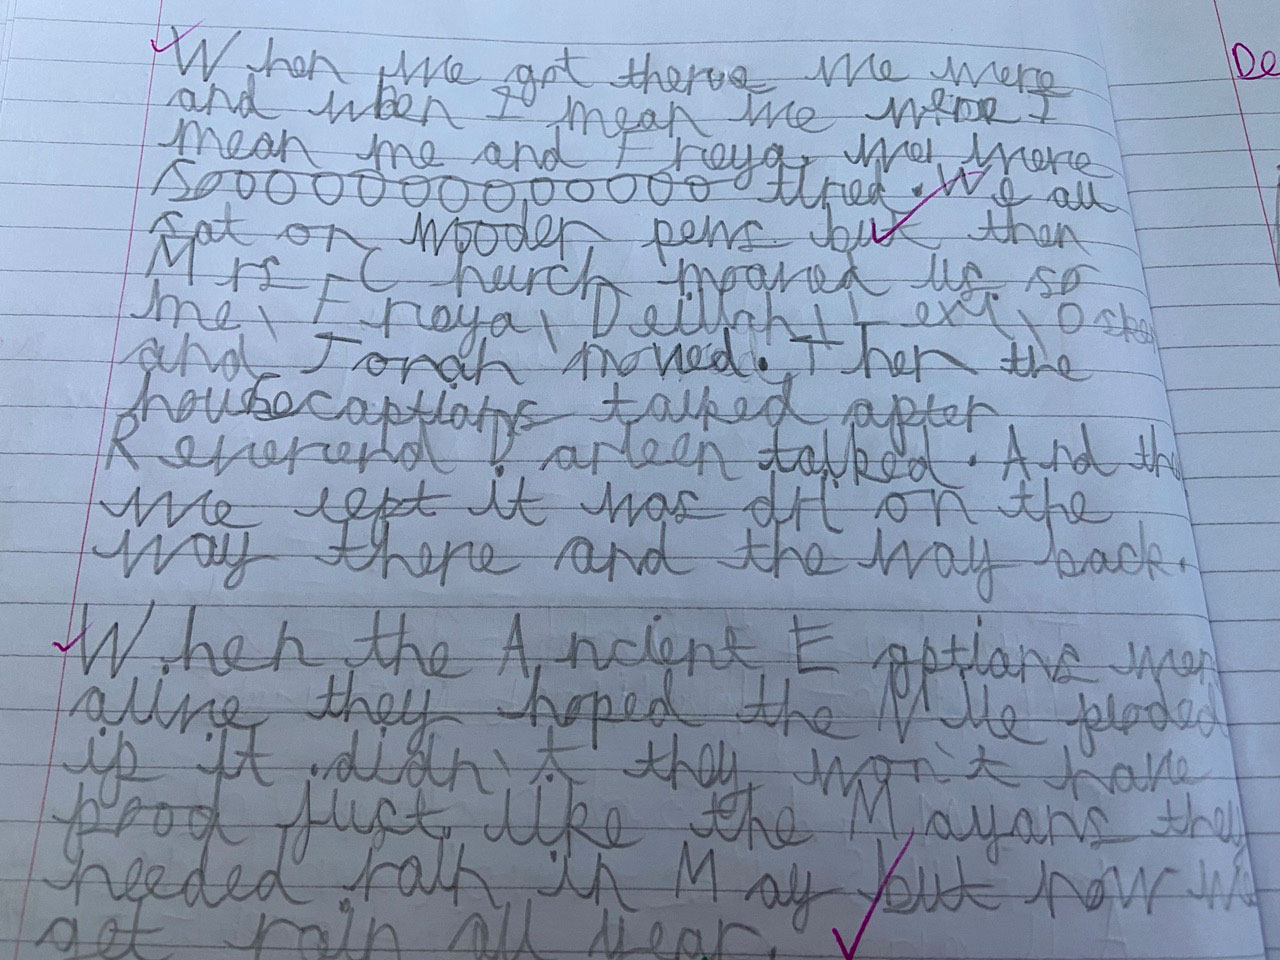 When we got there we were
De
and when I mean we were I
mean me and Freya, we were
Sooooooooooooo tired. We all
sat on wooden pews but then
Mrs Church moaved us so
me, Freya, Delilah, Lexi, Oska
and Jonah moved. Then the
housecaptians talked after
Reverend Darleen talked. And the
we left it was dri on the
way there and the way back.
When the Ancient Egptians wer
alive they hoped the Nile floded
if it didn't they won't have
food just like the Mayans they
needed rain in May but now we
get rain all year.